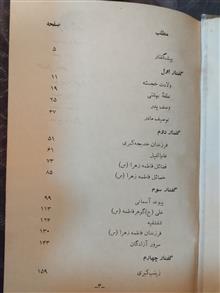 مطلب صفحه
پیشگفتار ۵
گفتار اول
ولادت خجسته ۱۱
۱۹
وصف پدر ۲۵
توصیف مادر ۳۷
گفتار دوم
فرزندان خدیجه کبری ۵۱
۶۱
فضائل فاطمه زهرا (س) ۷۳
خصائل فاطمه زهرا (س) ۸۵
گفتار سوم
پیوند آسمانی ۹۹
علی (ع) گوهر فاطمه (س) ۱۱۳
شقشقیه ۱۲۳
فرزندان فاطمه زهرا (س) ۱۳۰
سرور آزادگان ۱۴۳
گفتار چهارم
زینب کبری ۱۵۹
-۳-